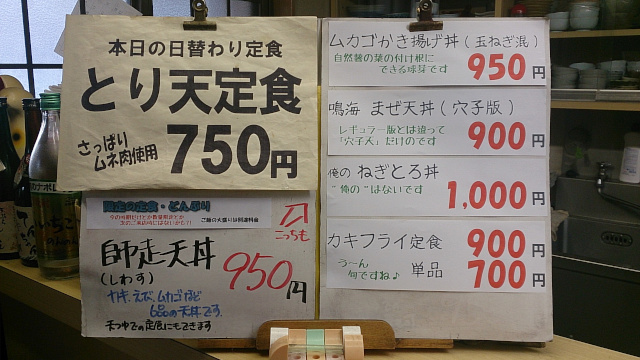 本日の日替わり定食
とり天定食
さっぱり
ムネ肉使用
750円
限定の定食・どんぶり
ご飯の大盛りは別途料金
こっちも
師走天丼
(しわす)
950円
カキ、えび、ムカゴなど
6品の天丼です。
天つゆでの定食にもできます
ムカゴかき揚げ丼(玉ねぎ混)
自然薯の葉の付け根に
できる球芽です
950円
鳴海 まぜ天丼(穴子版)
レギュラー版とは違って
「穴子天」だけのです
900円
俺の ねぎとろ丼
"俺の"はないです
1,000円
カキフライ定食 900円
う〜ん
何ですね♪
単品 700円